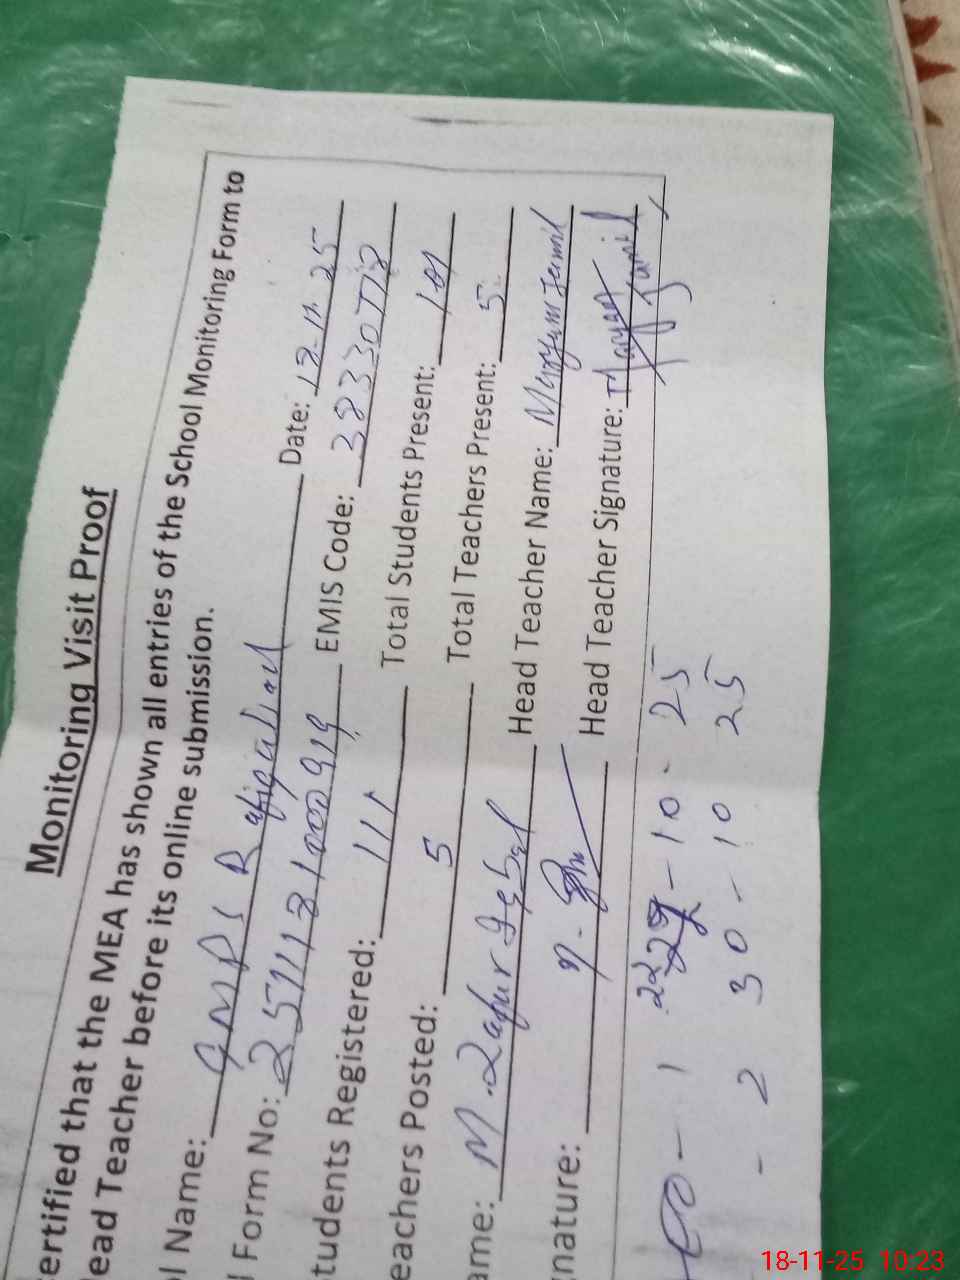 Monitoring Visit Proof
ertified that the MEA has shown all entries of the School Monitoring Form to
ead Teacher before its online submission.
l Name: GMPS Rafiqabad Date: 18-11-25
l Form No: EMIS Code: 38330718
tudents Registered: 111 Total Students Present: 101
eachers Posted: 5 Total Teachers Present: 5
ame: M. Zafar Iqbal Head Teacher Name: Maryam Jamil
nature: Head Teacher Signature: Maryam Jamil
- 1 - 10 - 25
- 2 30 - 10 25
18-11-25 10:23